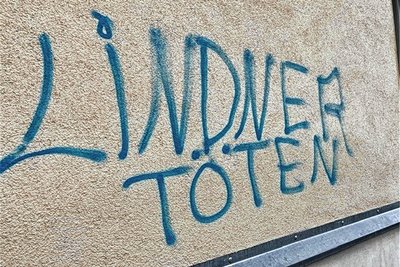 LINDNER
TÖTEN